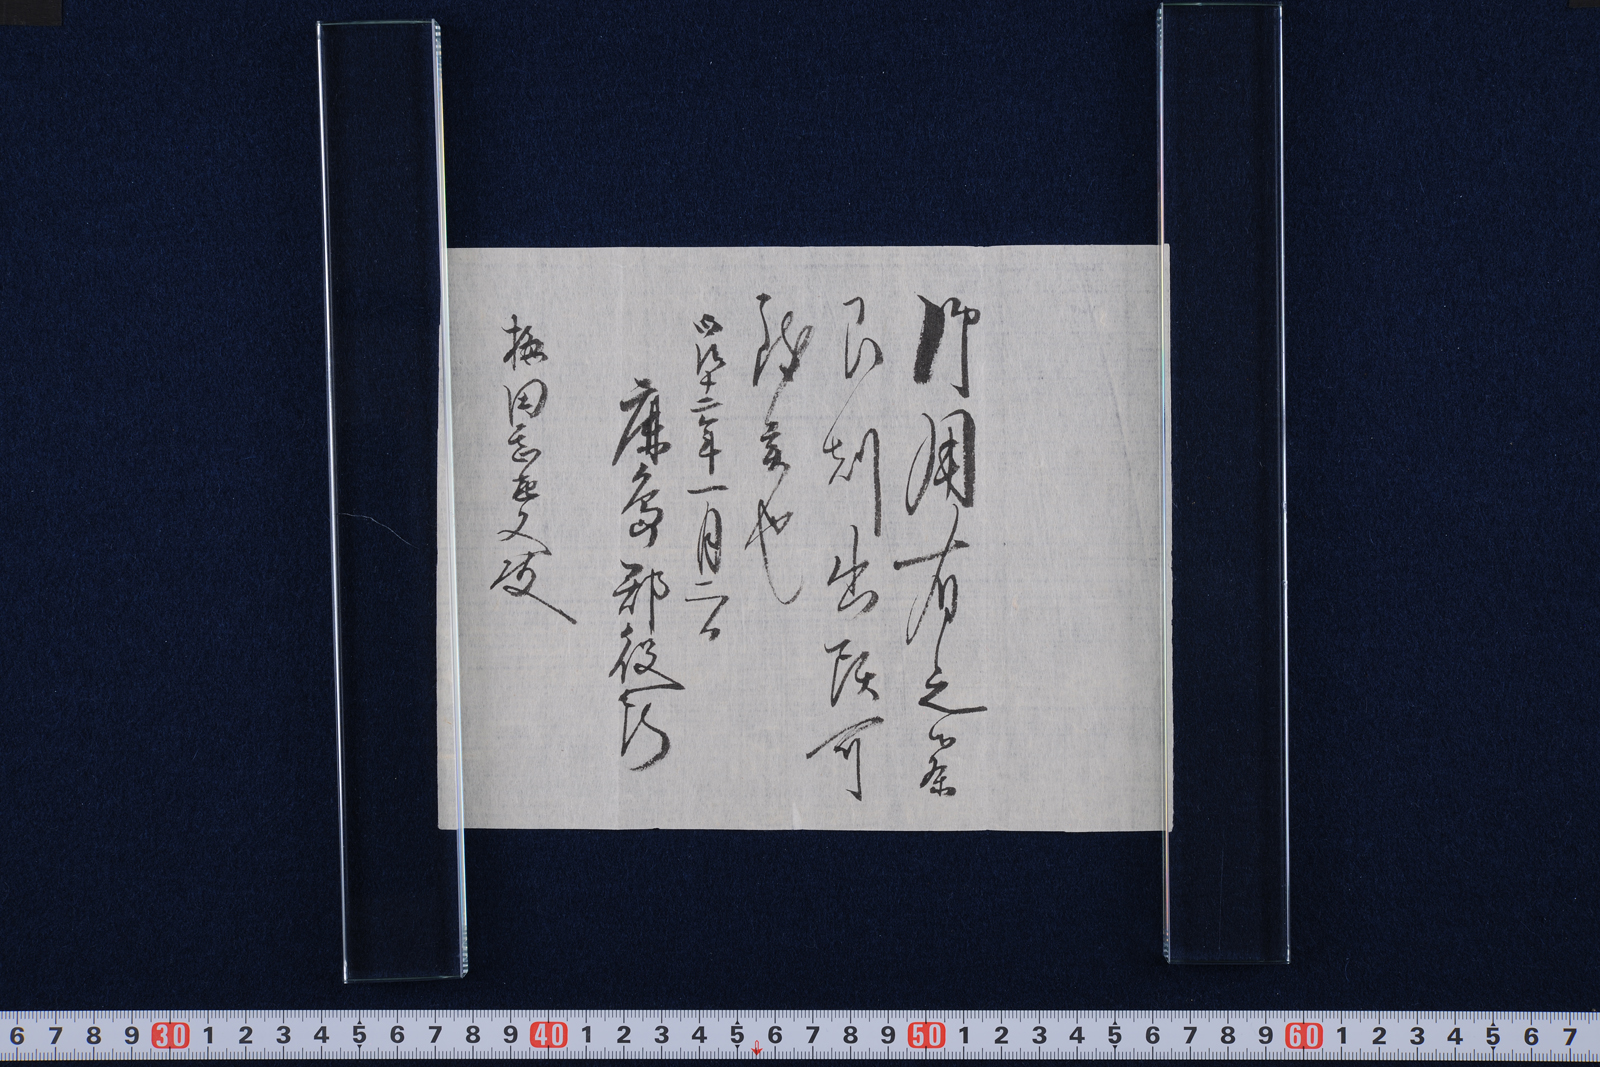 御用有之候条
即刻出頭可
致也
明治十二年一月
鹿島郡役所
梅田殿
6 7 8 9 30 1 2 3 4 5 6 7 8 9 40 1 2 3 4 5 6 7 8 9 50 1 2 3 4 5 6 7 8 9 60 1 2 3 4 5 6 7